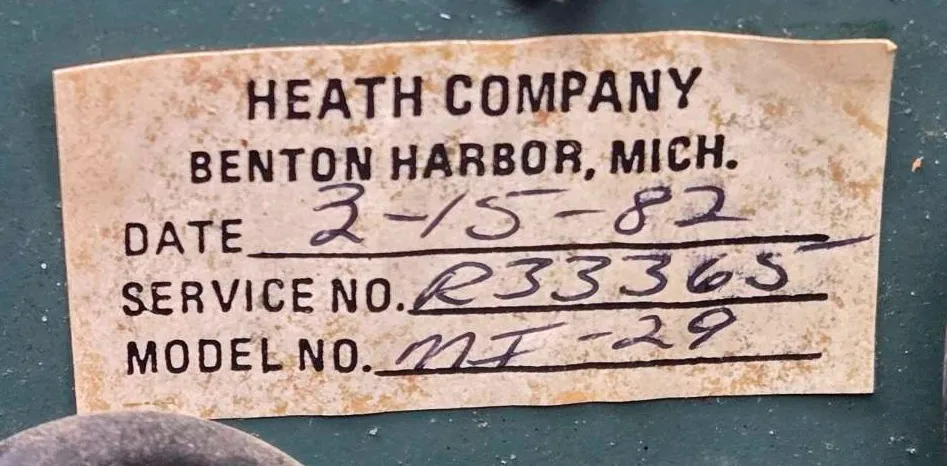 HEATH COMPANY
BENTON HARBOR, MICH.
DATE 2-15-82
SERVICE NO. R33365
MODEL NO. MI-29